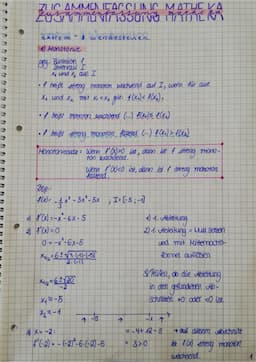 ZUSAMMENFASSUNG MATHE KA
Extrem- & Wendestellen
a) Monotonie
geg: Funktion f
Intervall I
x₁ und x₂ aus I
• f heißt streng monoton wachsend auf I, wenn für alle
x₁ und x₂ mit x₁ < x₂ gilt: f(x₁) < f(x₂).
• f heißt monoton wachsend (...) f(x₁) ≤ f(x₂)
• f heißt streng monoton fallend (...) f(x₁) > f(x₂)
Monotoniesatz: Wenn f'(x) > 0 ist, dann ist f streng mono-
ton wachsend.
Wenn f'(x) < 0 ist, dann ist f streng monoton
fallend.
Bsp.:
f(x) = -⅓x³ - 3x² - 5x , I = [-5; -1]
1) f'(x) = -x² - 6x - 5
1) 1. Ableitung
2) f'(x) = 0
2) 1. Ableitung = Null setzen
0 = -x² - 6x - 5
und mit Mitternachts-
formel auflösen
x₁ = -5
x₂ = -1
3) Prüfen, ob die Ableitung
in den gefundenen Ab-
schnitten > 0 oder < 0 ist.
3) x = -2:
f'(-2) = -(-2)² - 6·(-2) - 5
= -4 + 12 - 5
= 3 > 0
→ auf diesem Abschnitt
ist f(x) streng monoton
wachsend.
1